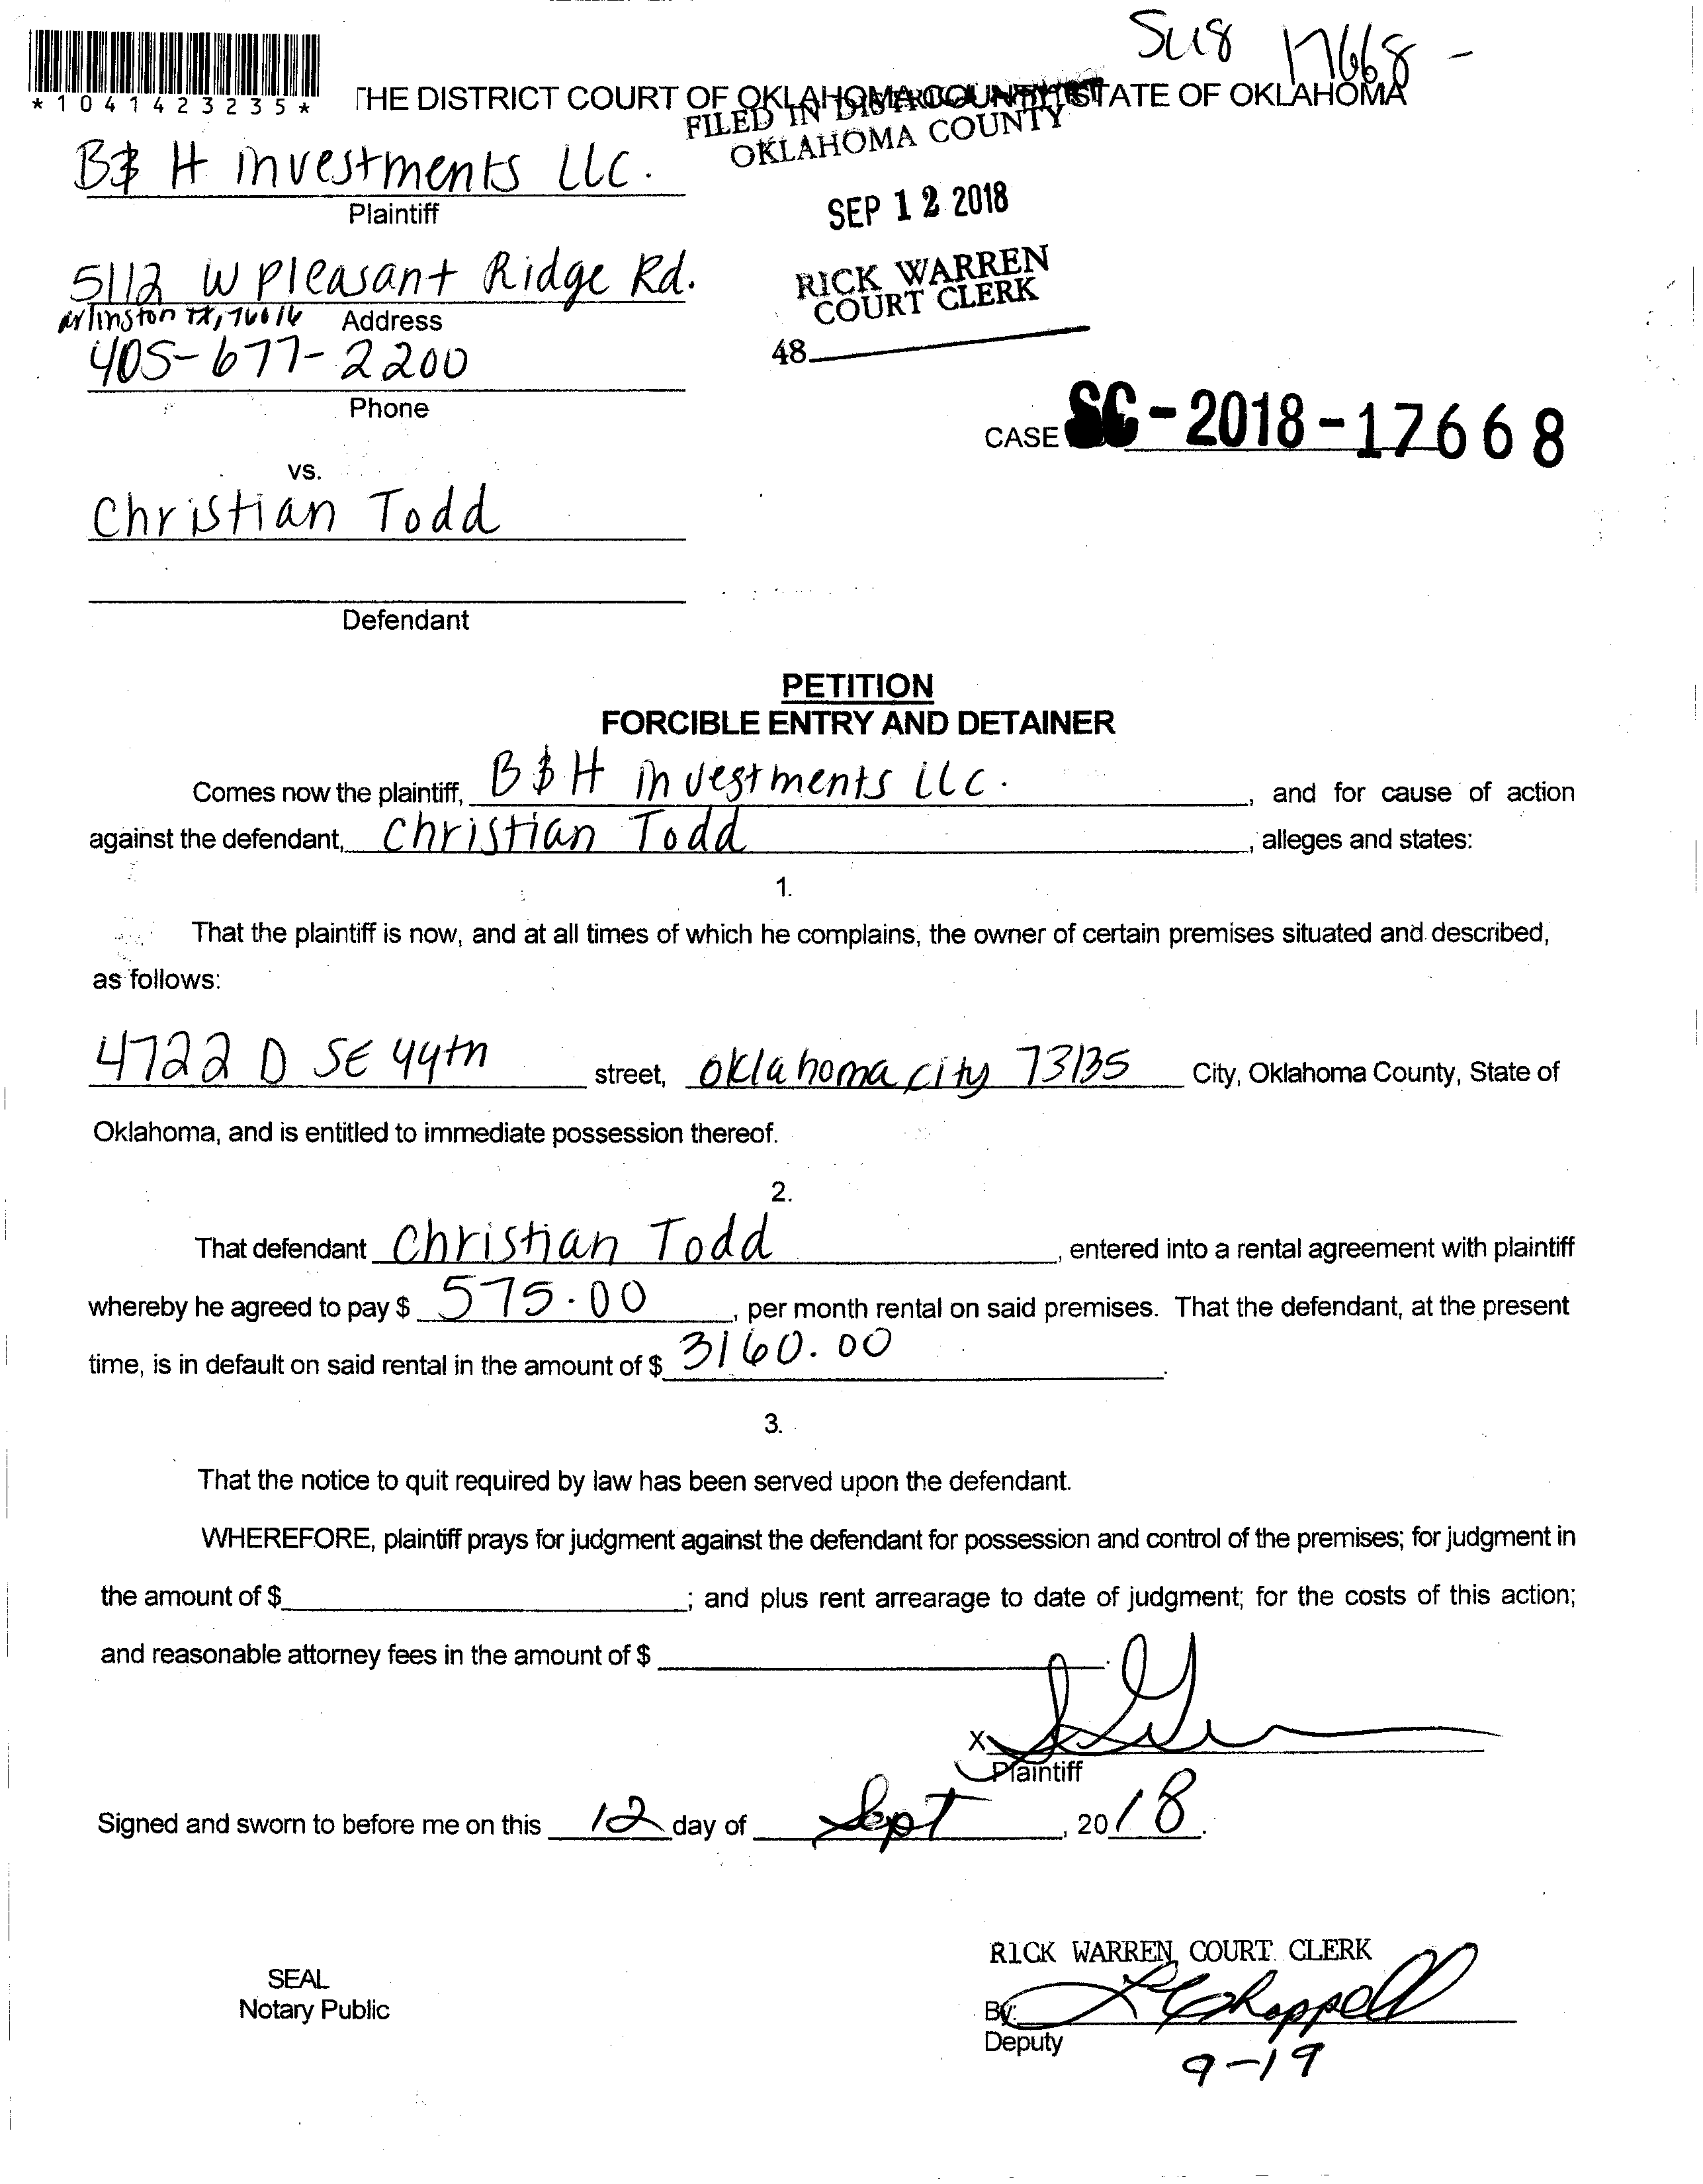 Su8 17668 -
*1041423235*
THE DISTRICT COURT OF OKLAHOMA COUNTY, STATE OF OKLAHOMA
FILED IN DISTRICT COURT
OKLAHOMA COUNTY
B & H investments LLC.
Plaintiff
SEP 12 2018
5112 W Pleasant Ridge Rd.
arlinston TX, 76016 Address
RICK WARREN
COURT CLERK
405-677-2200
48
Phone
CASE SC-2018-17668
vs.
Christian Todd
Defendant
PETITION
FORCIBLE ENTRY AND DETAINER
Comes now the plaintiff, B & H investments LLC. , and for cause of action
against the defendant, Christian Todd , alleges and states:
1.
That the plaintiff is now, and at all times of which he complains, the owner of certain premises situated and described,
as follows:
4722 D SE 44th street, oklahoma city 73135 City, Oklahoma County, State of
Oklahoma, and is entitled to immediate possession thereof.
2.
That defendant Christian Todd , entered into a rental agreement with plaintiff
whereby he agreed to pay $ 575.00 , per month rental on said premises. That the defendant, at the present
time, is in default on said rental in the amount of $ 3160.00 .
3.
That the notice to quit required by law has been served upon the defendant.
WHEREFORE, plaintiff prays for judgment against the defendant for possession and control of the premises; for judgment in
the amount of $ ; and plus rent arrearage to date of judgment; for the costs of this action;
and reasonable attorney fees in the amount of $ .
X
Plaintiff
Signed and sworn to before me on this 12 day of Sept , 2018.
RICK WARREN, COURT CLERK
SEAL
Notary Public
By: Chappell
Deputy
9-19